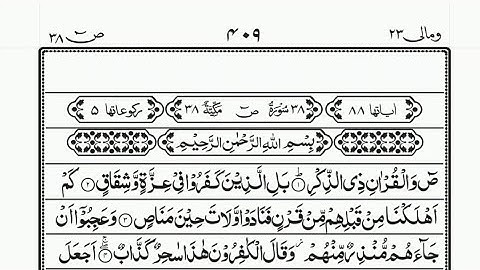 ومالی ۲۳ ۴۰۹ صٓ ۳۸
اٰیاتها ۸۸ ۳۸ سُوْرَةُ صٓ مَكِّیَّةٌ ۳۸ رکوعاتها ۵
بِسْمِ اللّٰهِ الرَّحْمٰنِ الرَّحِیْمِ
صٓ وَالْقُرْاٰنِ ذِی الذِّكْرِ ۱ بَلِ الَّذِیْنَ كَفَرُوْا فِیْ عِزَّةٍ وَّشِقَاقٍ ۲ كَمْ
اَهْلَكْنَا مِنْ قَبْلِهِمْ مِّنْ قَرْنٍ فَنَادَوْا وَّلَاتَ حِیْنَ مَنَاصٍ ۳ وَعَجِبُوْۤا اَنْ
جَآءَهُمْ مُّنْذِرٌ مِّنْهُمْ وَقَالَ الْكٰفِرُوْنَ هٰذَا سٰحِرٌ كَذَّابٌ ۴ اَجَعَلَ